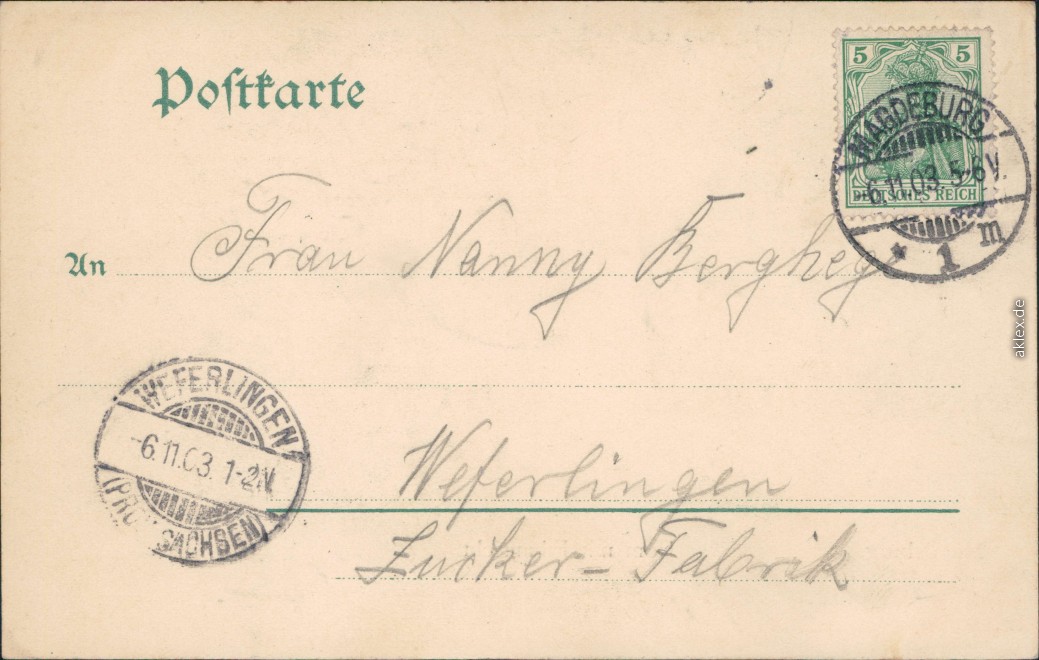 Postkarte
5 5
DEUTSCHES REICH
MAGDEBURG
-6.11.03. 5-6V.
* 1 m
An Frau Nanny Berghey
WEFERLINGEN
-6.11.03. 1-2N.
SACHSEN)
Weferlingen
Zucker-Fabrik
aklex.de